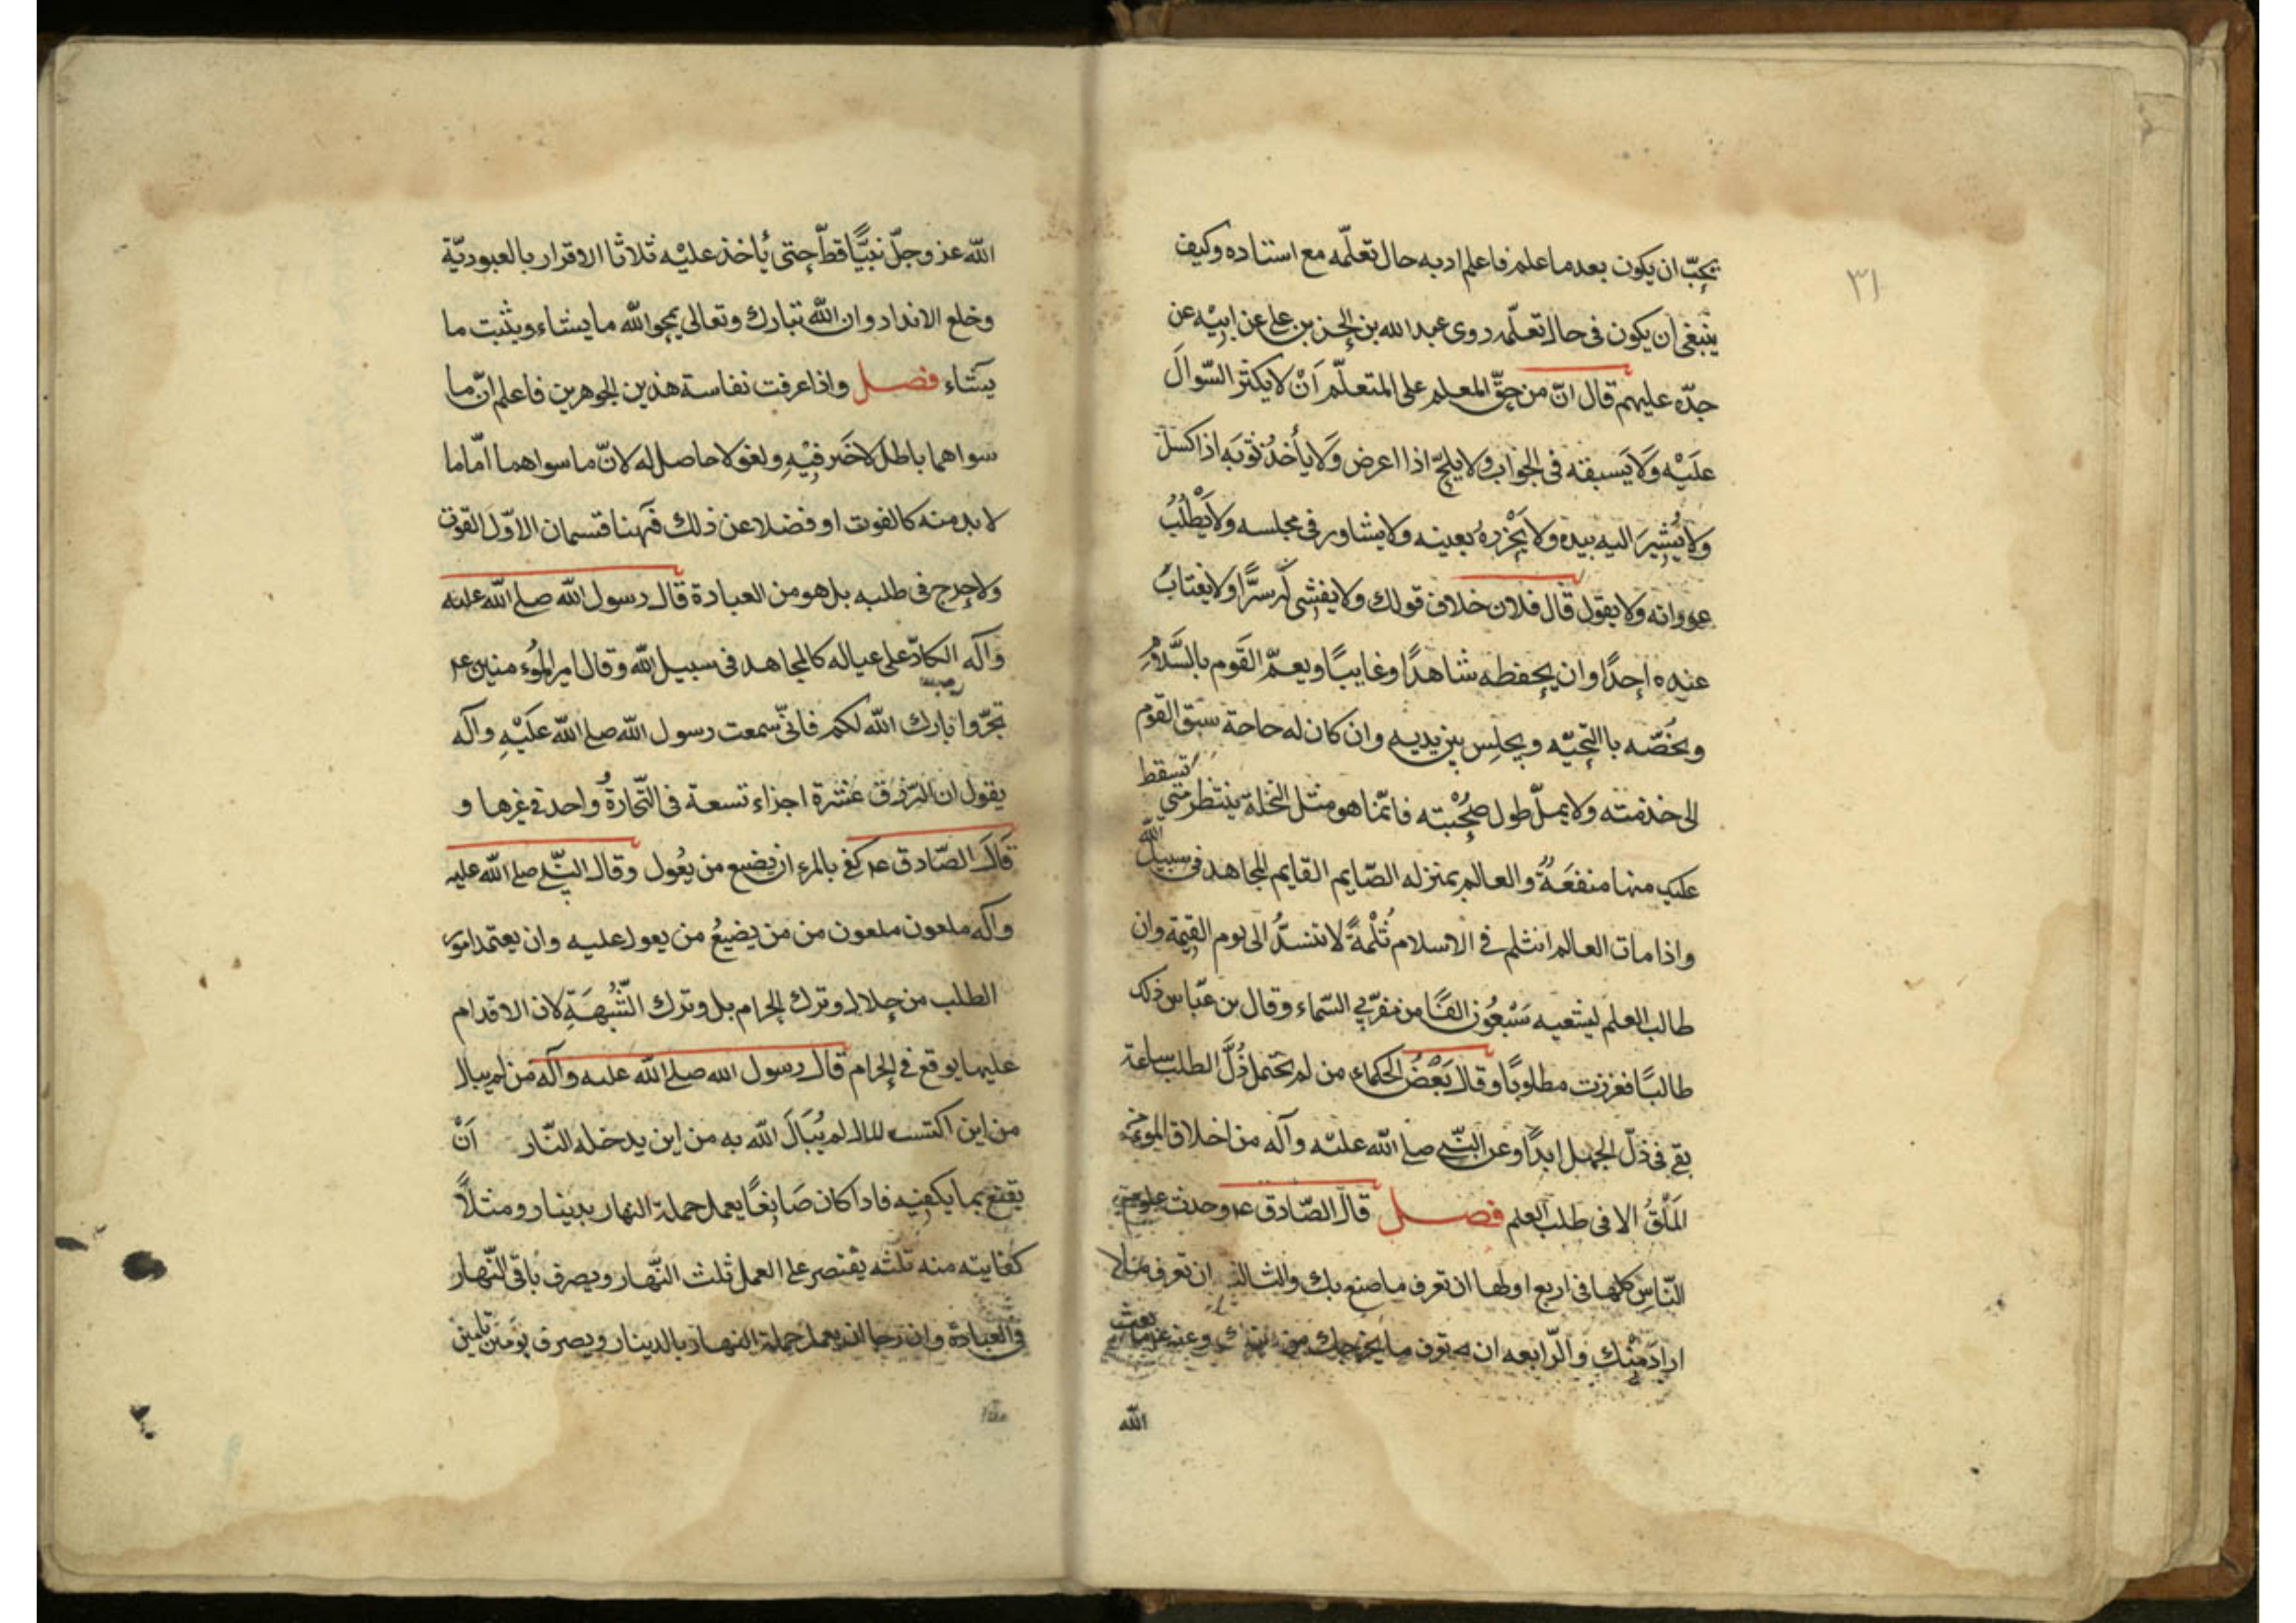 ٣١
يجب ان يكون بعد ما علم فاعلم ادبه حال تعلّمه مع استاده وكيف
ينبغي ان يكون في حال تعلّمه روى عبد الله بن الحسن بن علي عن ابيه عن
جدّه عليهم قال انّ من حقّ المعلم على المتعلّم اَنْ لا يكثر السّوالَ
علَيْه وَلَا يَسبقه فى الجواب ولا يلحّ اذا اعرض وَلَا يأخذُ بثوبَه اذا كسل
ولا يُشِيرَ اليه بيده ولا يَخْزرهُ بعينه ولا يشاور فى مجلسه ولا يَطْلُبُ
عوراته ولا يقول قال فلان خلاف قولك ولا يفشى له سرًّا ولا يغتابُ
عنده احدًا وان يحفظه شاهدًا وغايبًا ويعمّ القَوم بالسَّلامِ
ويخصّه باالتحيّه ويجلِس بين يديه وان كان له حاجة سبق القوم
الى خدمته ولا يملّ طول صُحْبته فانّما هو مثل النخلة ينتظر متى تسقط
عليك منها منفعَةٌ والعالم بمنزله الصّايم القايم المجاهد فى سبيل الله
واذا مات العالم انثلم فى الاسلام ثُلْمةً لا تنسدُّ الى يوم القيمة وان
طالب العلم ليشعيه سَبْعُون الفًا من مقرّبي السّماء وقال بن عبّاس ذللت
طالبًا فعززت مطلوبًا وقال بَعْضُ الحكماء من لم يحتمل ذُلَّ الطلب ساعة
بقي فى ذلّ الجهل ابدًا وعن النّبي صلى الله عليه وآله من اخلاق المومن
المَلَقُ الا فى طلب العلم فصل قال الصّادق عم وجدت علوم
النّاس كلها فى اربع اولها ان تعرف ما صنع بك والثالث ان تعرف
اراد مِنْك والرّابعه ان تعرف ما يخرجك من وعنه عم ما بعث
الله
الله عز وجلّ نبيًّا قطّ حتى يأخذ عليْه ثلاثا الاقرار بالعبوديّة
وخلع الانداد وان الله تبارك وتعالى يمحو الله ما يشاء ويثبت ما
يشاء فصل واذا عرفت نفاسة هذين الجوهرين فاعلم انّ ما
سواهما باطل لا خَير فِيْهِ ولغو لا حاصل له لانّ ما سواهما امّا ما
لا بد منه كالقوت او فضلا عن ذلك فهنا قسمان الاوّل القوت
ولا حرج فى طلبه بل هو من العبادة قال رسول الله صلى الله عليه
وآله الكادّ على عياله كالمجاهد فى سبيل الله وقال امير المؤمنين عم
تجرّوا بارك الله لكم فانّي سمعت رسول الله صلى الله عَلَيْهِ وآله
يقول ان الرّزق عشرة اجزاء تسعة فى التّجارةُ واحد فى غيرها و
قَالَ الصّادق عم كفى بالمرء ان يضيع من يَعُول وقال النّبي صلى الله عليه
وآله ملعون ملعون من من يضيعُ من يعول عليه وان يعتمد امور
الطلب من حلال وترك الحرام بل وترك الشُّبهَةِ لان الاقدام
عليها يوقع فى الحرام قال رسول الله صلى الله عليه وآله من لم يبال
من اين اكتسب المال لم يُبَالَ الله به من اين يدخله النّار اَنْ
يقنع بما يكفيه فاذا كان صَايغًا يعمل جملة النهار بدينار ومثلًا
كفايته منه ثلثه يقتصر على العمل ثلث النّهار ويصرف باقى النّهار
فى العبادة وان رجا ان يعمل جملة النهار بالدينار ويصرف يومَين ثامين